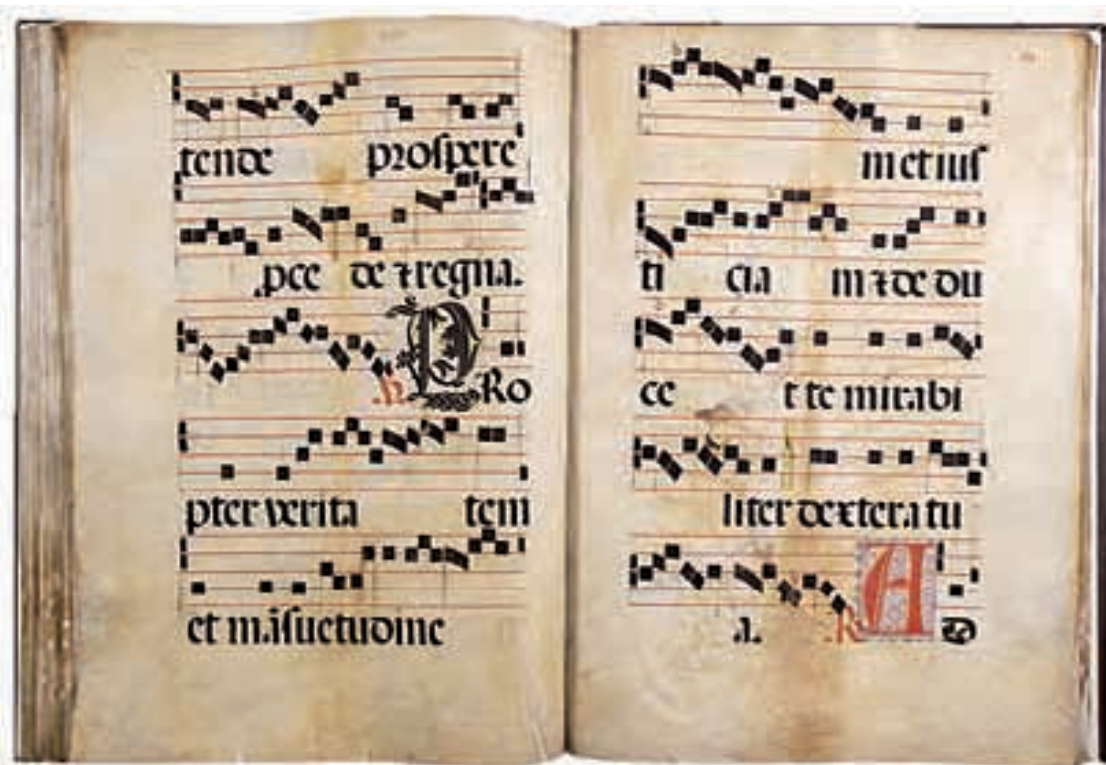 tende proſpere
pce de ⁊ regna.
PRo
pter verita tem
et māſuetudine
m et iuſ
ti cia m ⁊ de du
ce t te mirabi
liter dextera tu
a. A